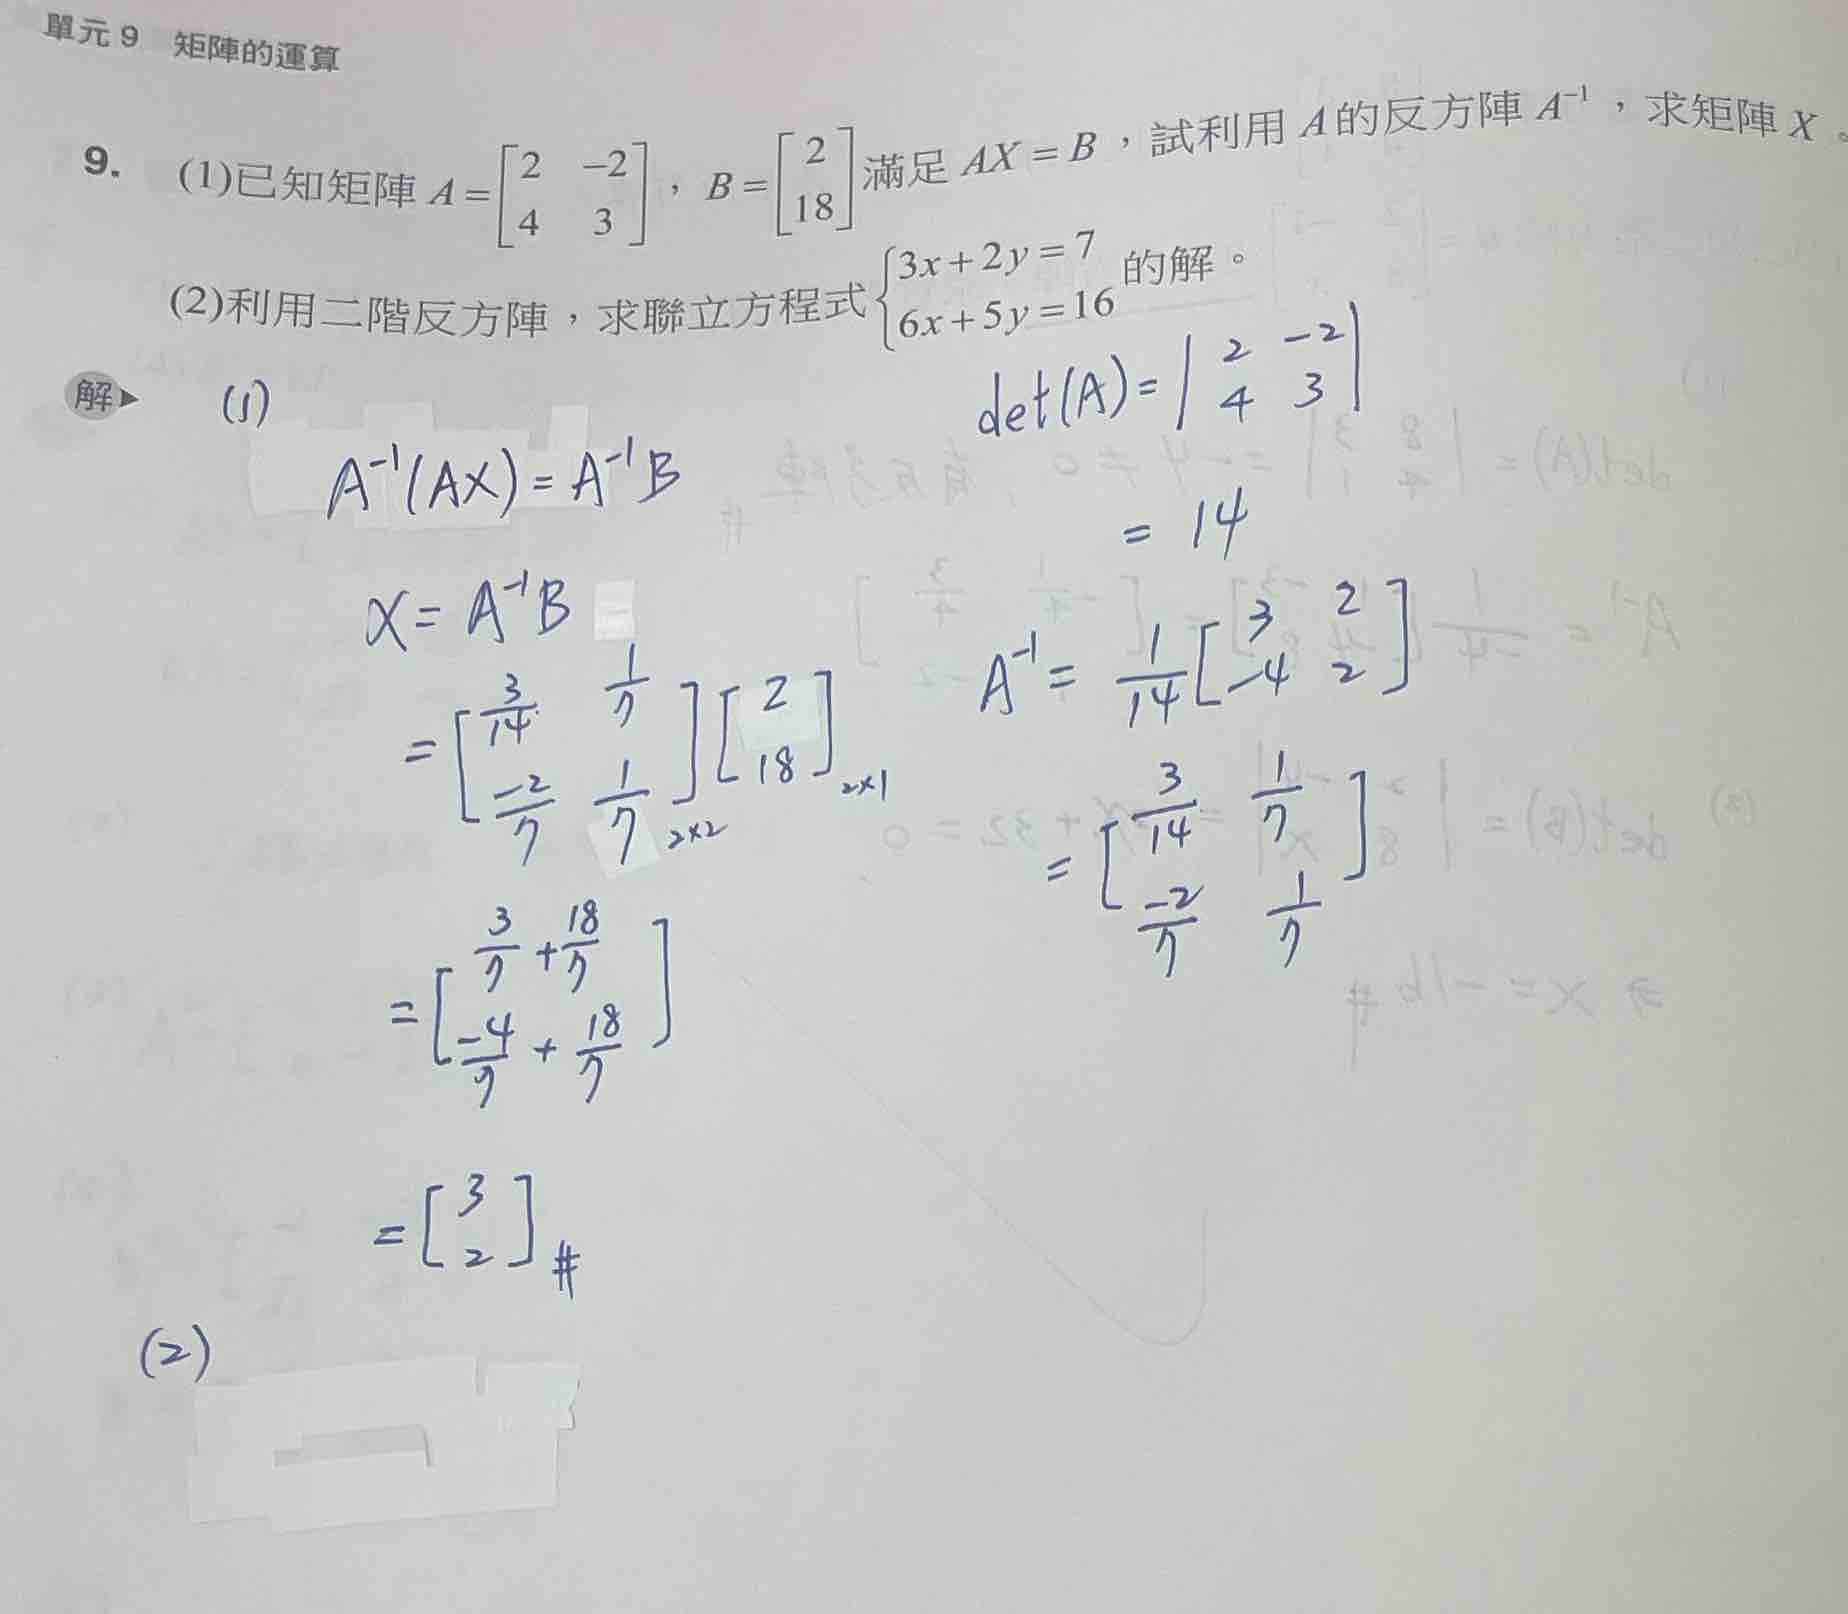 單元 9 矩陣的運算
9. (1)已知矩陣 A = [2 -2; 4 3],B = [2; 18] 滿足 AX = B,試利用 A 的反方陣 A⁻¹,求矩陣 X。
(2)利用二階反方陣,求聯立方程式 {3x + 2y = 7; 6x + 5y = 16 的解。
解
(1)
A⁻¹(AX) = A⁻¹B
X = A⁻¹B
= [3/14 1/7; -2/7 1/7]2×2 [2; 18]2×1
= [3/7 + 18/7; -4/7 + 18/7]
= [3; 2] #
det(A) = |2 -2; 4 3|
= 14
A⁻¹ = 1/14 [3 2; -4 2]
= [3/14 1/7; -2/7 1/7]
(2)